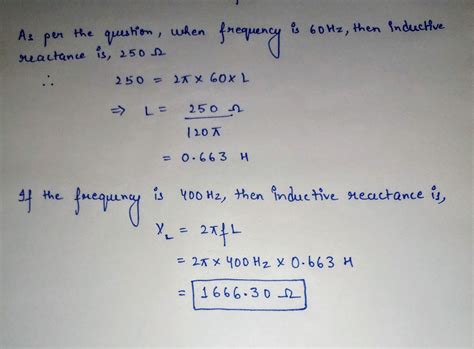 As per the question, when frequency is 60Hz, then inductive
reactance is, 250 Ω
∴ 250 = 2π × 60 × L
⇒ L = 250 Ω / 120π
= 0.663 H
If the frequency is 400 Hz, then inductive reactance is,
X_L = 2πfL
= 2π × 400 Hz × 0.663 H
= 1666.30 Ω